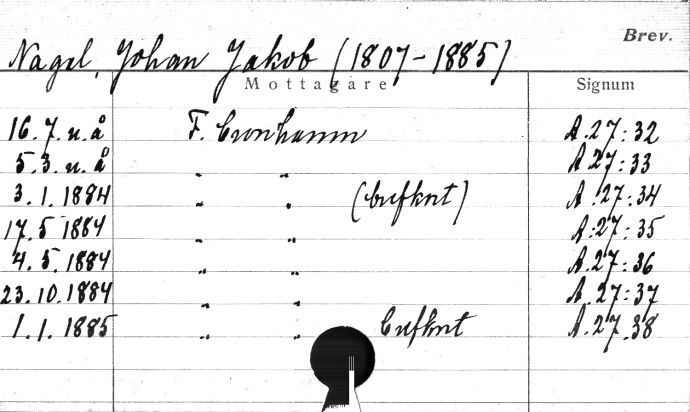 Brev.
Nagel, Johan Jakob (1807-1885)
Mottagare Signum
16.7.u.å F. Cronhamn A.27:32
5.3.u.å " " A.27:33
3.1.1884 " " (brefkort) A.27:34
17.5 1884 " " A.27:35
4.5.1884 " " A.27:36
23.10.1884 " " A.27:37
1.1.1885 " " Brefkort A.27.38